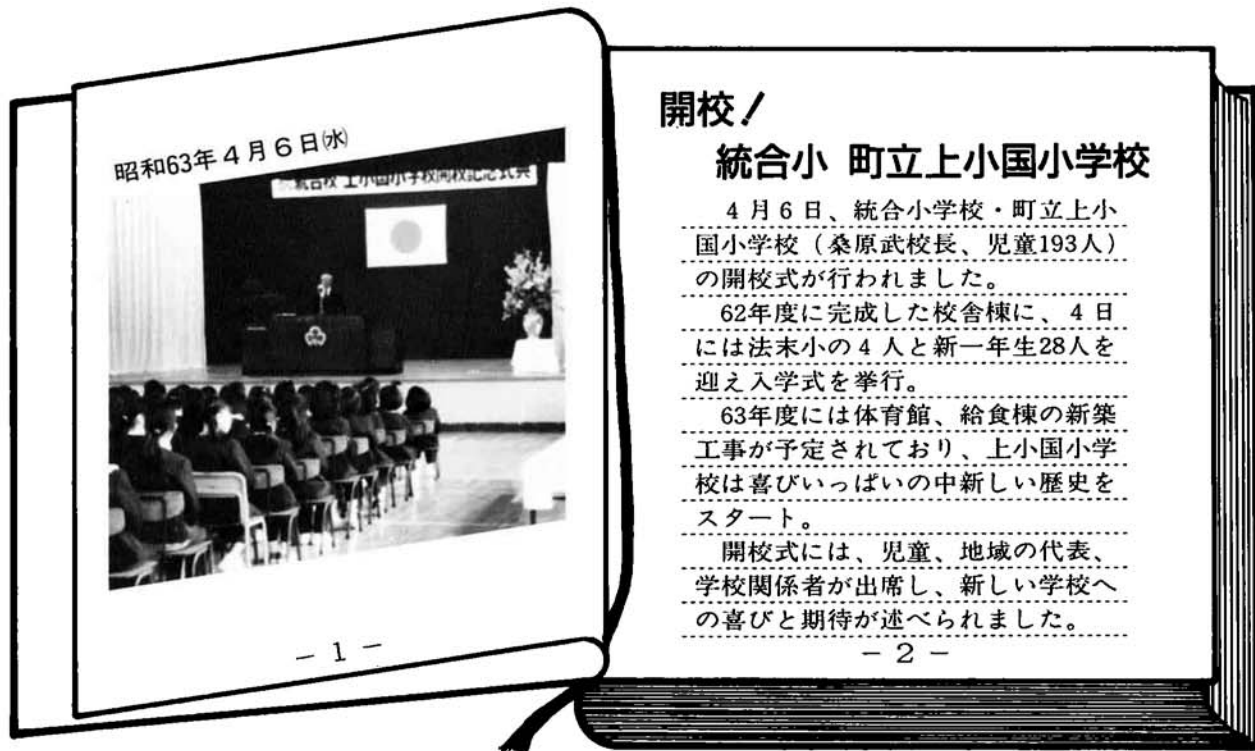 昭和63年4月6日㈬
統合校 上小国小学校開校記念式典
－1－
開校!
統合小 町立上小国小学校
4月6日、統合小学校・町立上小
国小学校（桑原武校長、児童193人）
の開校式が行われました。
62年度に完成した校舎棟に、4日
には法末小の4人と新一年生28人を
迎え入学式を挙行。
63年度には体育館、給食棟の新築
工事が予定されており、上小国小学
校は喜びいっぱいの中新しい歴史を
スタート。
開校式には、児童、地域の代表、
学校関係者が出席し、新しい学校へ
の喜びと期待が述べられました。
－2－